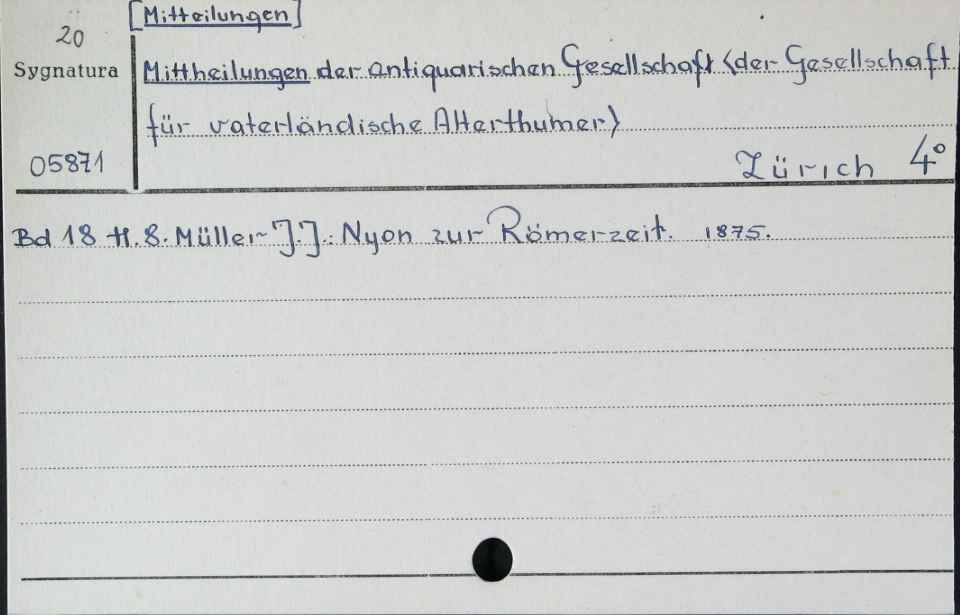 [Mitteilungen]
20
Sygnatura
Mittheilungen der antiquarischen Gesellschaft <der Gesellschaft
für vaterländische Alterthumer>
05871
Zürich 4°
Bd 18 H. 8. Müller J. J.: Nyon zur Römerzeit. 1875.